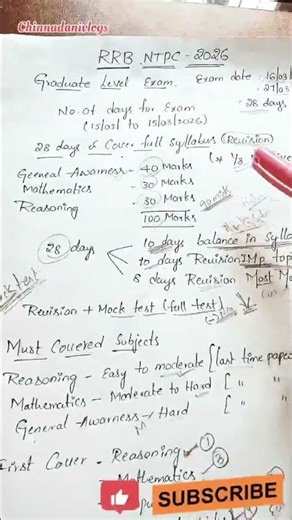 Chinnadanivlogs
RRB NTPC - 2026
Graduate Level Exam. Exam date : 16/03
27/03
No. of days for Exam : 28 days
(15/02 to 15/03/2026)
28 days of Cover full Syllabus (Revision)
(* 1/3
General Awarness - 40 Marks
Mathematics - 30 Marks
Reasoning - 30 Marks
100 Marks
90 mints
28 days
10 days balance in Sylla
10 days Revision IMP top
8 days Revision Most
Revision + Mock test (full test)
Must Covered Subjects
Reasoning - Easy to moderate [last time pape
Mathematics - Moderate to Hard [ " "
General Awarness → Hard [ " "
First Cover - Reasoning ①
Mathematics ②
SUBSCRIBE